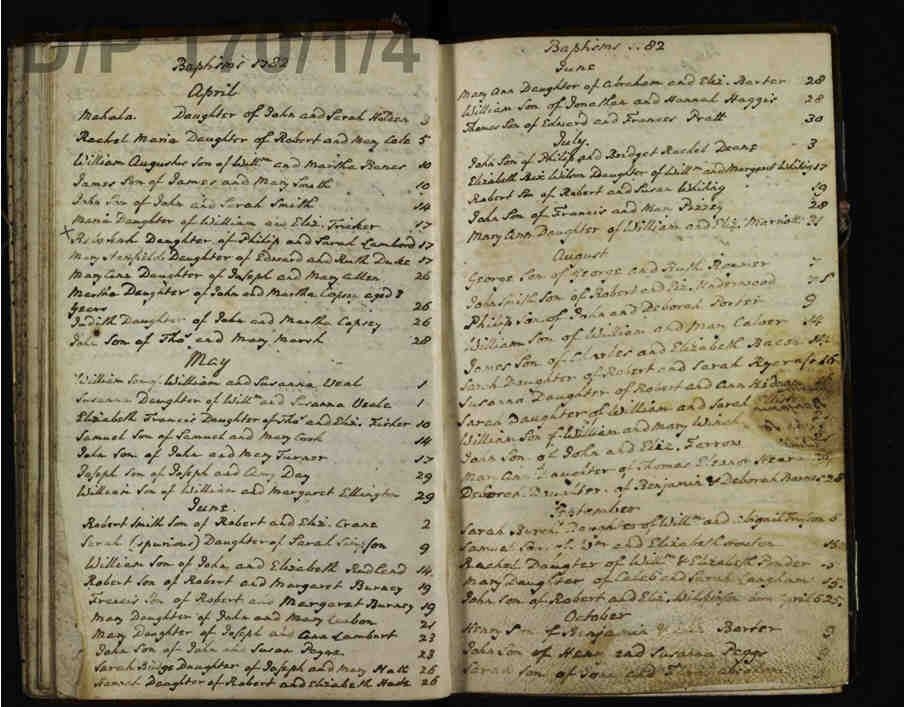 D/P 170/1/4
Baptisms 1782
April
Mahala Daughter of John and Sarah 3
Rachel Maria Daughter of Robert and Mary Cole 5
William Augustus Son of Willm and Martha 10
James Son of James and Mary Smith 10
John Son of John and Sarah Smith 14
Maria Daughter of William and Eliz. Tricker 17
x Daughter of Philip and Sarah Lambord 17
Mary Daughter of Edward and Ruth Duke 17
Mary Ann Daughter of Joseph and Mary Allen 26
Martha Daughter of John and Martha Copsey aged 8
years 26
Judith Daughter of John and Martha Copsey 26
John Son of Thos and Mary Marsh 28
May
William Son of William and Susanna Veal 1
Susanna Daughter of Willm and Susanna Veale 1
Elizabeth Francis Daughter of Thos and Eliz. Fisher 10
Samuel Son of Samuel and Mary Cook 14
John Son of John and Mary Turner 17
Joseph Son of Joseph and Amy Day 29
William Son of William and Margaret Ellington 29
June
Robert Smith Son of Robert and Eliz. Crane 2
Sarah (spurious) Daughter of Sarah Simpson 9
William Son of John and Elizabeth Redland 14
Robert Son of Robert and Margaret Burney 19
Francis Son of Robert and Margaret Burney 19
Mary Daughter of John and Mary 21
Mary Daughter of Joseph and Ann Lambert 23
John Son of John and Susan Payne 23
Sarah Daughter of Joseph and Mary Hall 26
Hannah Daughter of Robert and Elizabeth 26
Baptisms 1782
June
Mary Ann Daughter of Abraham and Eliz. Barter 28
William Son of Jonathan and Hannah Haggis 28
Thomas Son of Edward and Frances Pratt 30
July
John Son of Philip and Bridget Rachel Deane 3
Elizabeth Wilson Daughter of Willm and Margaret Whiting 17
Robert Son of Robert and Susan Whiting 19
John Son of Francis and Mary 28
Mary Ann Daughter of William and Eliz. Marriott 31
August
George Son of George and Ruth 7
John Smith Son of Robert and Eliz. Underwood 7
Philip Son of John and Deborah Porter 9
William Son of William and Mary Calver 14
James Son of Charles and Elizabeth Bacon
Sarah Daughter of Robert and Sarah Rycraft 16
Susanna Daughter of Robert and Ann
Sarah Daughter of William and Sarah
William Son of William and Mary Winch
John Son of John and Eliz. Farrow
Mary Ann Daughter of Thomas Eleanor
Deborah Daughter of Benjamin & Deborah Barnes 28
September
Sarah Daughter of Willm and Abigail 6
Samuel Son of Wm and Elizabeth 15
Rachel Daughter of Willm & Elizabeth Ponder
Mary Daughter of Caleb and Sarah Langham 15
John Son of Robert and Eliz. Wilkinson born April 6 25
October
Henry Son of Benjamin Barter
John Son of Henry and Susanna Peggs
Sarah